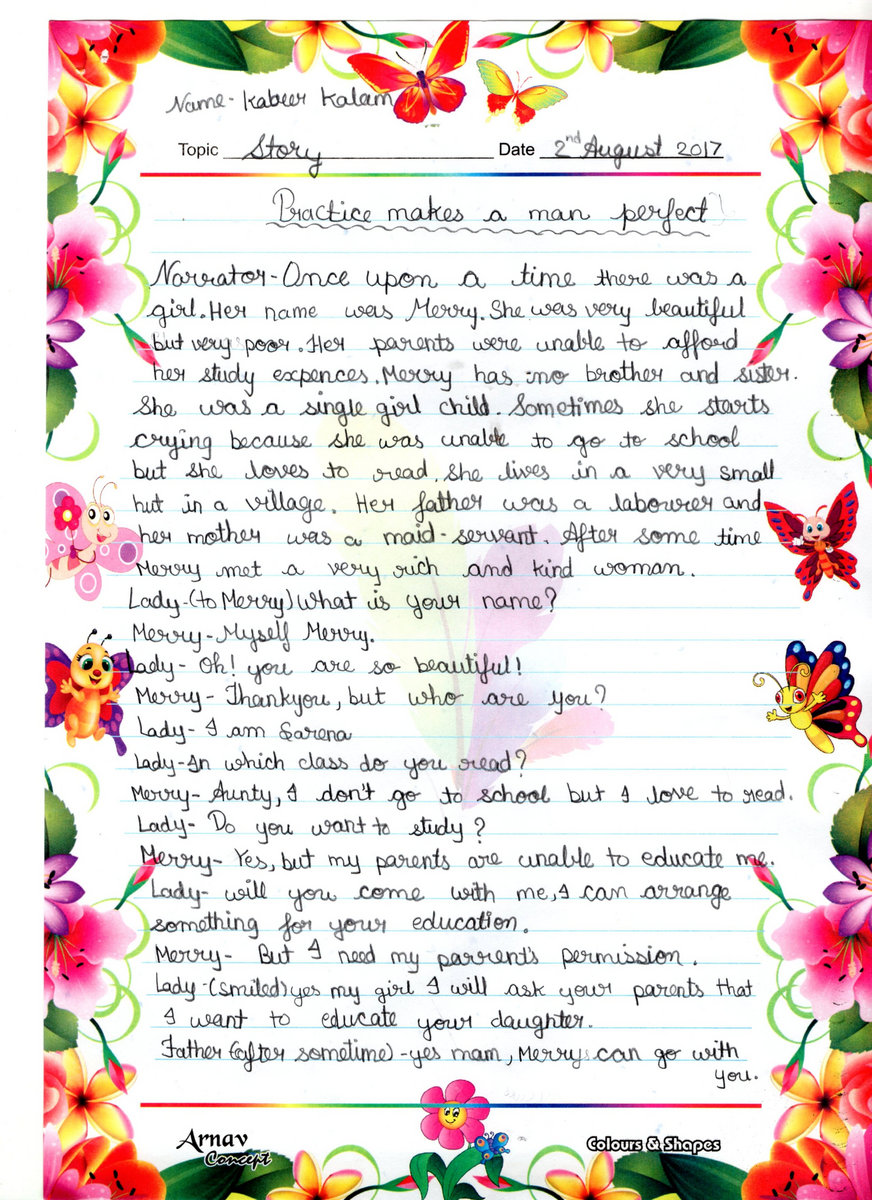 Name- Kabeer Kalam
Topic Story Date 2nd August 2017
Practice makes a man perfect
Narrator-Once upon a time there was a
girl. Her name was Merry. She was very beautiful
but very poor. Her parents were unable to afford
her study expences. Merry has no brother and sister.
She was a single girl child. Sometimes she starts
crying because she was unable to go to school
but she loves to read. She lives in a very small
hut in a village. Her father was a labourer and
her mother was a maid-servant. After some time
Merry met a very rich and kind woman.
Lady-(to Merry) What is your name?
Merry-Myself Merry.
Lady- Oh! you are so beautiful!
Merry- Thankyou, but who are you?
Lady- I am Sarena
Lady-In which class do you read?
Merry- Aunty, I don't go to school but I love to read.
Lady- Do you want to study?
Merry- Yes, but my parents are unable to educate me.
Lady- will you come with me, I can arrange
something for your education.
Merry- But I need my parrent's permission.
Lady-(smiled) yes my girl I will ask your parents that
I want to educate your daughter.
Father (after sometime) -yes mam, Merry can go with
you.
Arnav
Concept
Colours & Shapes